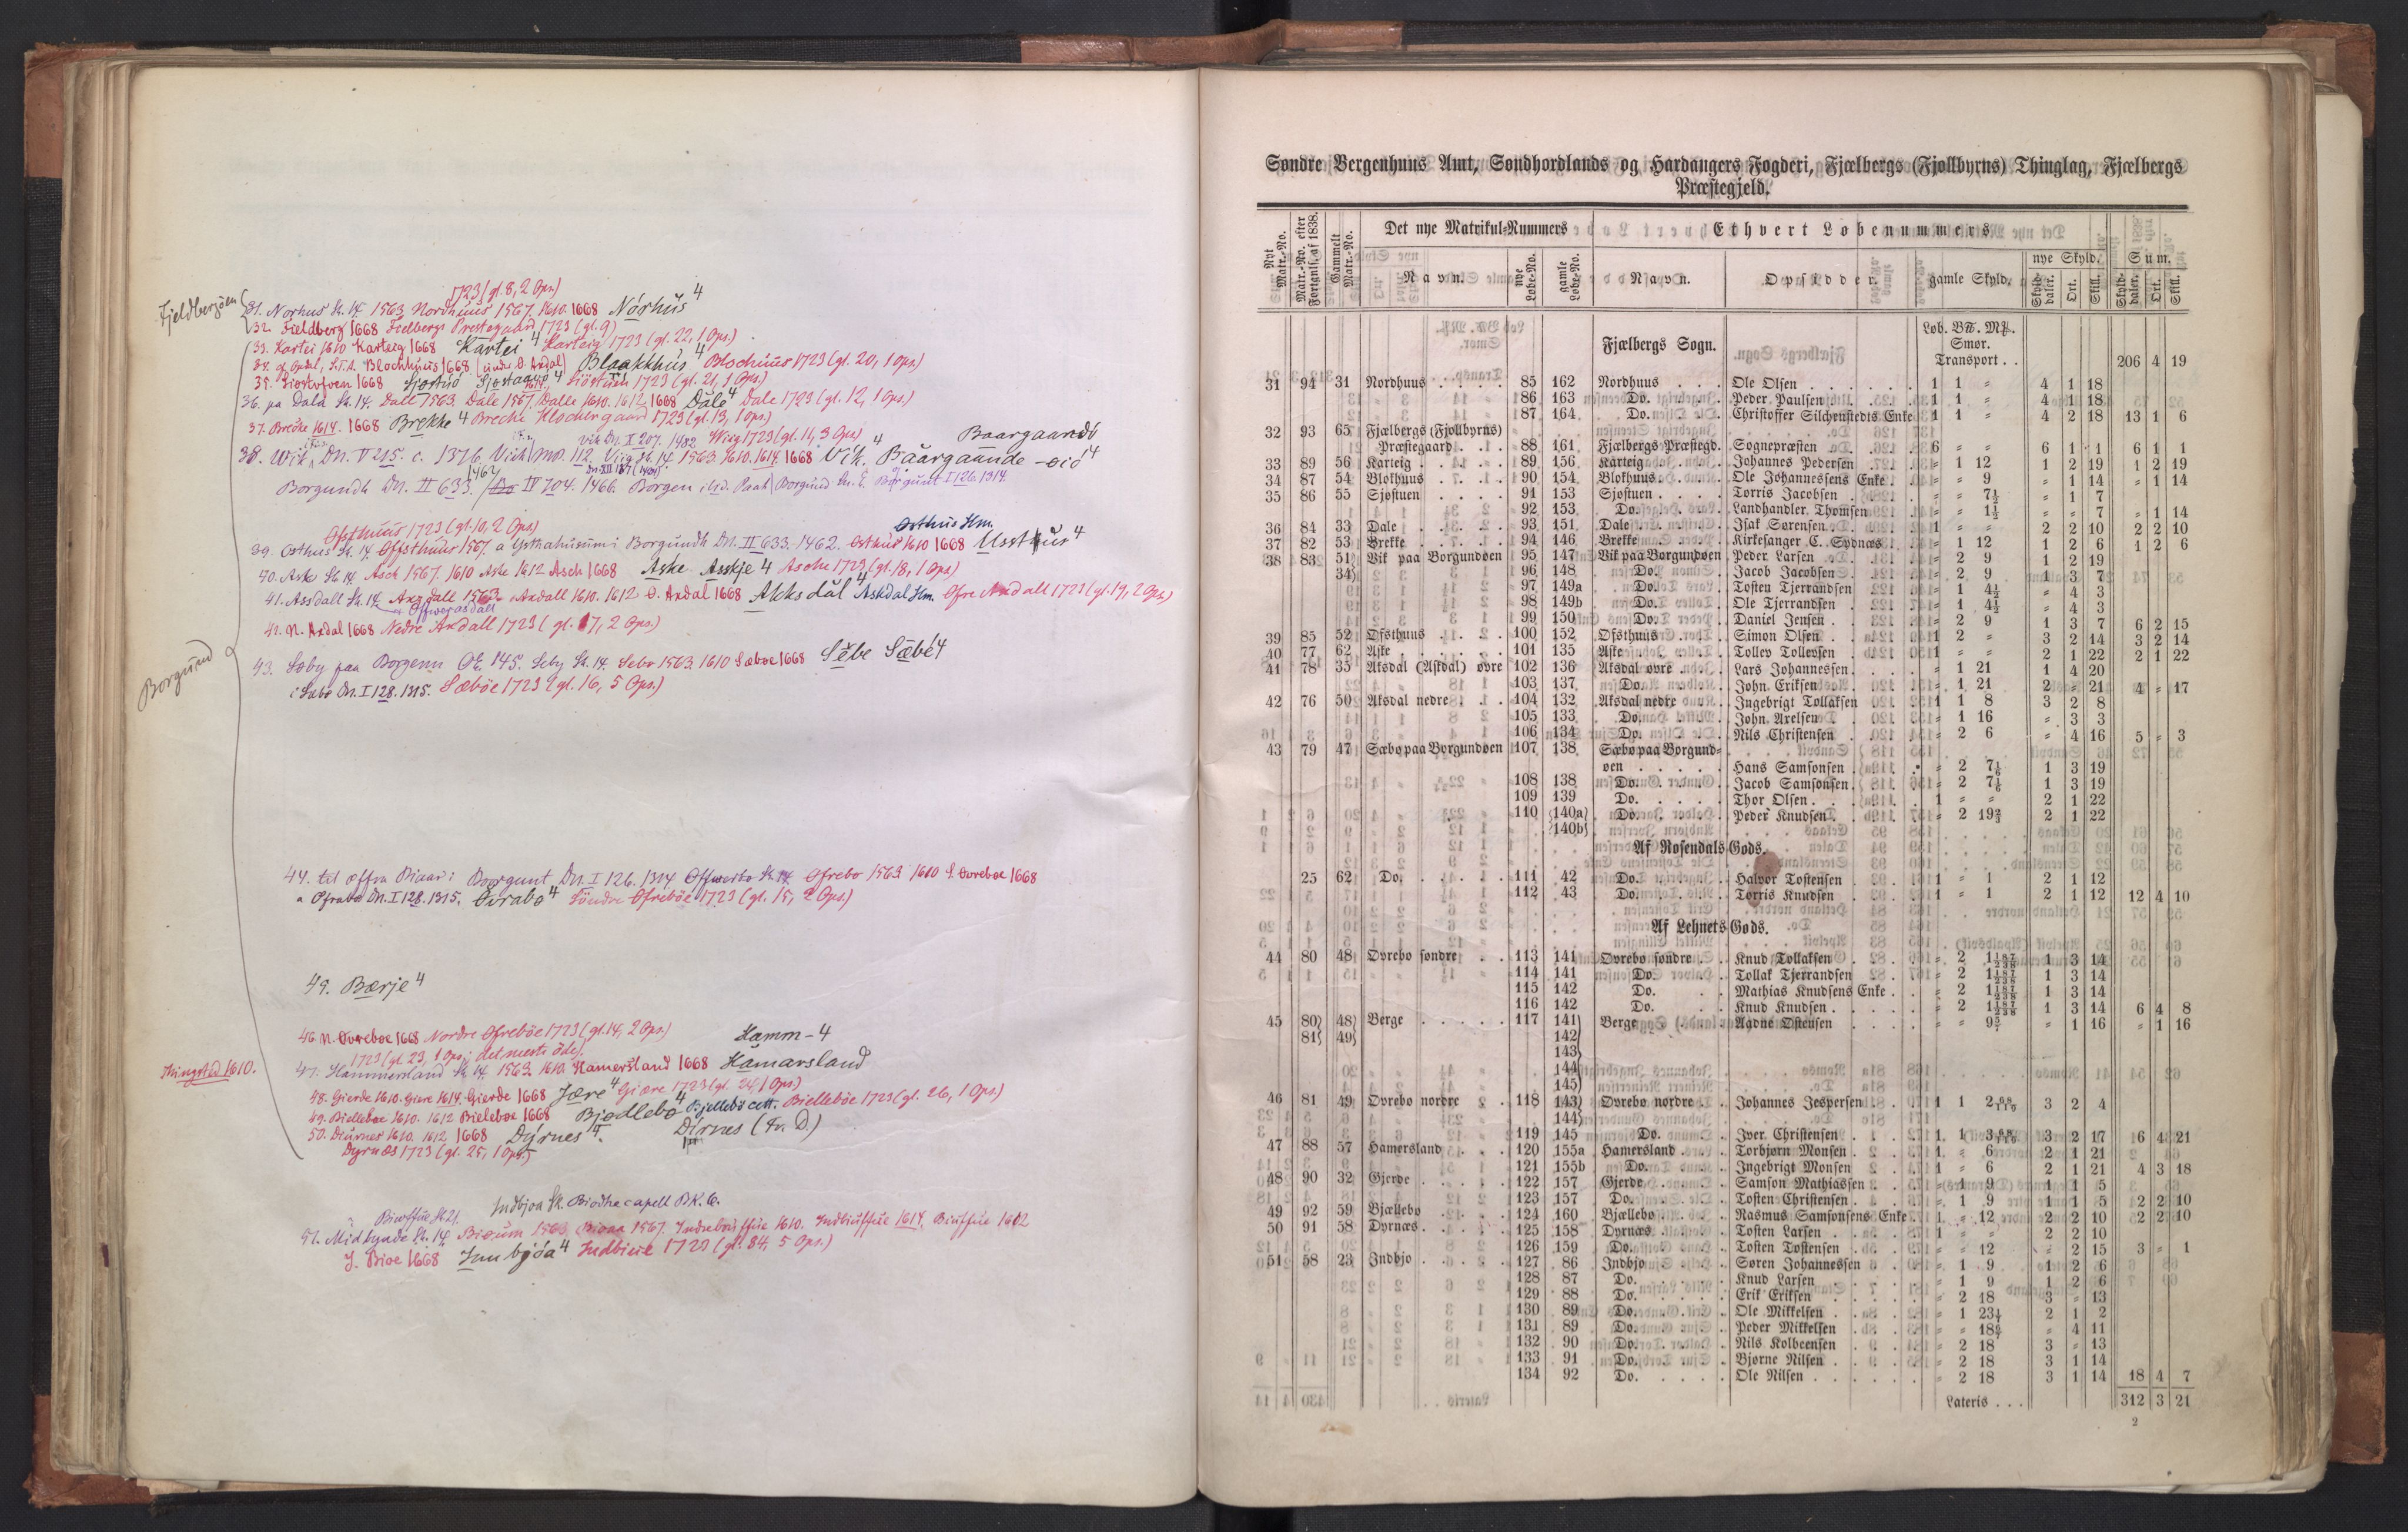 1723 (gl. 8, 2 Ops.)
Fjeldbergöen
31. Norhus St. 14. 1563. Nordhuus 1567. 1610. 1668 Nórhus 4
32. Fieldberg 1668 Fielbergs Prestegaard 1723 (gl. 9)
33. Kartei 1610 Karteig 1668 Kartei 4 Karteig 1723 (gl. 22, 1 Ops.)
Blochhuus 1668 (under O. Axdal) Blaakkhús 4 Blochuus 1723 (gl. 20, 1 Ops.)
35. Siostofven 1668 Siöstuen 1723 (gl. 21, 1 Ops.)
36. pa Dala St. 14. Dall 1563. Dale 1567. Dalle 1610. 1612. 1668 Dale 4 Dale 1723 (gl. 12, 1 Ops.)
37. Brecke 1614. 1668 Brekke 4 Breche Klochergaard 1723 (gl. 13, 1 Ops.)
vik Dn. X 207. 1492 Wiig 1723 (gl. 11, 3 Ops.) Baargaandö
38. Wik Dn. V 215. c. 1376 Viig St. 14. 1563. 1610. 1614. 1668 Vik. Båargaande-oió 4
Borgundh Dn. II 633. 1462 IV 704. 1466. Borgen Borgund Borgunt I 126. 1314.
Ofsthuus 1723 (gl. 10, 2 Ops.) Osthus Hm.
39. Osthus St. 14. Offsthuus 1567. a Ysthahusum i Borgundh Dn. II 633. 1462. Osthus 1610 1668 Usthus 4
40. Ask St. 14. Asch 1567. 1610 Aske 1612 Asch 1668 Aske Asskje 4 Asche 1723 (gl. 18, 1 Ops.)
41. Assdall St. 14. Axdall 1563. Axdall 1610. 1612 O. Axdal 1668 Akksdal 4 Askdal Hm. Øfre Axdall 1723 (gl. 19, 2 Ops.)
42. N. Axdal 1668 Nedre Axdall 1723 (gl. 17, 2 Ops.)
Borgund
43. Soby paa Borgenn OE 145. Seby St. 14. Sebo 1563. 1610 Sæboe 1668 Sěbe Sæbé 4
i Sæbø Dn. I 128. 1315. Sæböe 1723 (gl. 16, 5 Ops.)
44. til øffra Biaar i Borgunt Dn. I 126. 1314 Offwerbo St. 14. Ofrebo 1563 1610 S. Ovreboe 1668
a Ofrabø Dn. I 128. 1315. Øvrabo 4 Söndre Øfreböe 1723 (gl. 15, 2 Ops.)
49. Bærje 4
46. N. Ovreboe 1668 Nordre Øfreböe 1723 (gl. 14, 2 Ops.) Hamm-4
1723 (gl. 23, 1 Ops.; det meste öde).
Thingsted 1610.
47. Hammersland St. 14. 1563. 1610. Hamersland 1668 Hamarsland
48. Gierde 1610. Giere 1614. Gierde 1668 Jære 4 Giære 1723 (gl. 24, 1 Ops.)
49. Bielleboe 1610. 1612 Bieleboe 1668 Bjødlebo 4 Bjellebö cett. Bielleböe 1723 (gl. 26, 1 Ops.)
50. Diurnes 1610. 1612 1668 Dýrnes 4. Dirnes (Fr. D.)
Dyrnæs 1723 (gl. 25, 1 Ops.)
Indbjoa Sk. Biodhe capell BK. 6.
Biwffue St. 21.
51. Midbynde St. 14. Bioum 1563. Bioaa 1567. Indrebiuffue 1610. Indbiuffue 1614. Biuffue 1612
J. Bioe 1668 Innbjóa 4 Indbioe 1723 (gl. 84, 5 Ops.)
Søndre Bergenhuus Amt, Søndhordlands og Hardangers Fogderi, Fjælbergs (Fjollbyrns) Thinglag, Fjælbergs
Præstegjeld.
Nyt Matr.-No. Matr.-No. efter Fortegnls. af 1838. Gammelt Matr.-No. Det nye Matrikul-Nummers Ethvert Løbenummers
Navn. nye Løbe-No. gamle Løbe-No. Navn. Opsidder. gamle Skyld. nye Skyld. Sum.
Skylddaler. Ort. Skill. Skylddaler. Ort. Skill.
Fjælbergs Sogn. Løb. B℔. M℔.
Smør.
Transport . . 206 4 19
31 94 31 Nordhuus 85 162 Nordhuus Ole Olsen 1 1 = 4 1 18
86 163 Do. Peder Paulsen 1 1 = 4 1 18
87 164 Do. Christoffer Silchenstedts Enke 1 1 = 4 2 18 13 1 6
32 93 65 Fjælbergs (Fjollbyrns)
Præstegaard 88 161 Fjælbergs Præstegd. Sognepræsten 6 = = 6 1 1 6 1 1
33 89 56 Karteig 89 156 Karteig Johannes Pedersen = 1 12 1 2 19 1 2 19
34 87 54 Blokhuus 90 154 Blokhuus Ole Johannessens Enke = = 9 = 1 14 = 1 14
35 86 55 Sjøstuen 91 153 Sjøstuen Torris Jacobsen = = 7½ = 1 7
92 153 Do. Landhandler Thomsen = = 1½ = = 7 = 1 14
36 84 33 Dale 93 151 Dale Isak Sørensen 1 = = 2 2 10 2 2 10
37 82 53 Brekke 94 146 Brekke Kirkesanger C. Sydnæs = 1 12 1 2 6 1 2 6
38 83 51 Vik paa Borgundøen 95 147 Vik paa Borgundøen Peder Larsen = 2 9 1 2 19
34 96 148 Do. Jacob Jacobsen = 2 9 1 3 7
97 149a Do. Tosten Tjerrandsen = 1 4½ = 4 3
98 149b Do. Ole Tjerrandsen = 1 4½ = 4 3
99 150 Do. Daniel Jensen = 2 9 1 3 7 6 2 15
39 85 52 Ofsthuus 100 152 Ofsthuus Simon Olsen 1 2 = 3 2 14 3 2 14
40 77 62 Aske 101 135 Aske Tollev Tollevsen 1 = = 2 1 22 2 1 22
41 78 35 Aksdal (Askdal) øvre 102 136 Aksdal øvre Lars Johannessen = 1 21 1 4 20
103 137 Do. John Eriksen = 1 21 2 = 21 4 = 17
42 76 50 Aksdal nedre 104 132 Aksdal nedre Ingebrigt Tollaksen 1 1 8 3 2 8
105 133 Do. John Axelsen = 1 16 = 3 3
106 134 Do. Nils Christensen = 2 6 = 4 16 5 = 3
43 79 47 Sæbø paa Borgundøen 107 138 Sæbø paa Borgund-
øen Hans Samsonsen = 2 7⅙ 1 3 19
108 138 Do. Jacob Samsonsen = 2 7⅙ 1 3 19
109 139 Do. Thor Olsen 1 = = 2 1 22
110 {140a} Do. Peder Knudsen = 2 19⅔ 2 1 22
{140b}
Af Rosendals Gods.
25 62 Do. 111 42 Do. Halvor Tostensen 1 = 1 2 1 12
112 43 Do. Torris Knudsen 1 = 1 2 1 12 12 4 10
Af Lehnets Gods.
44 80 48 Øvrebø søndre 113 141 Øvrebø søndre Knud Tollaksen = 2 1 187/238 1 3 14
114 141 Do. Tollak Tjerrandsen = 2 1 187/238 1 3 14
115 142 Do. Mathias Knudsens Enke = 2 1 187/238 1 3 14
116 142 Do. Knud Knudsen = 2 1 187/238 1 3 14 6 4 8
45 80} 48} Berge 117 141 Berge Aadne Østensen = = 9 5/7 = 1 16 = 1 16
81} 49} 142
143
144
145
46 81 49 Øvrebø nordre 118 143} Øvrebø nordre Johannes Jespersen 1 1 2 68/119 3 2 4
144}
119 145 Do. Iver Christensen 1 1 3 68/119 3 2 17 6 4 21
47 88 57 Hamersland 120 155a Hamersland Torbjørn Monsen 1 = 6 2 1 21
121 155b Do. Ingebrigt Monsen 1 = 6 2 1 21 4 3 18
48 90 32 Gjerde 122 157 Gjerde Samson Mathiassen = 1 9 1 1 5
123 157 Do. Tosten Christensen = 1 9 1 1 5 2 2 10
49 92 59 Bjællebø 124 160 Bjællebø Rasmus Samsonsens Enke 1 = 12 2 2 10 2 2 10
50 91 58 Dyrnæs 125 158 Dyrnæs Tosten Larsen 1 = = 2 2 10
126 159 Do. Tosten Tostensen = = 12 = 2 15 3 = 1
51 58 23 Indbjo 127 86 Indbjo Søren Johannessen = 1 9 1 2 6
128 87 Do. Knud Larsen = 1 9 1 2 6
129 88 Do. Erik Eriksen = 2 18 3 = 13
130 89 Do. Ole Mikkelsen = 1 23 2 1 2
131 89 Do. Peder Mikkelsen = = 18 = 4 11
132 90 Do. Nils Kolbeensen = 2 18 3 = 13
133 91 Do. Bjørne Nilsen = 2 18 3 1 14
134 92 Do. Ole Nilsen = 2 18 3 1 14 18 4 7
Lateris . . . 312 3 21
2